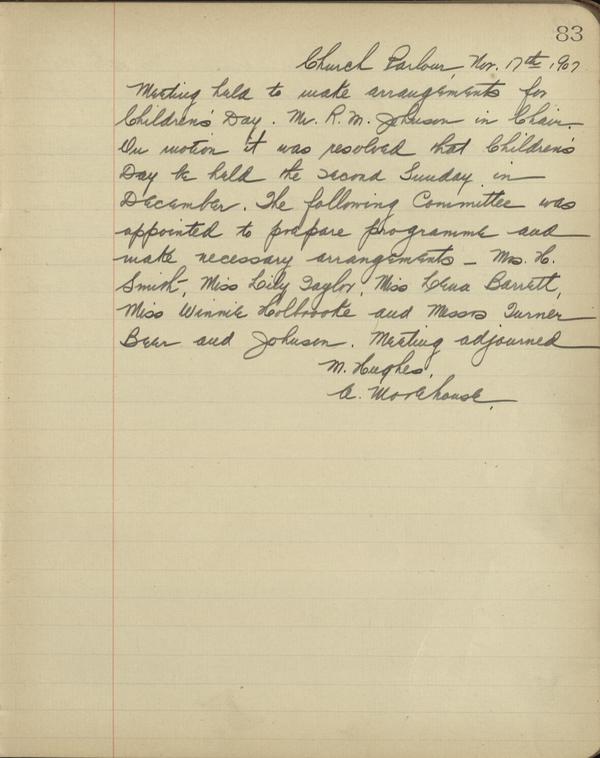 83
Church Parlour, Nov. 17th, 1907
Meeting held to make arrangements for
Children's Day. Mr. R. M. Johnson in Chair.
On motion it was resolved that Children's
Day be held the second Sunday in
December. The following Committee was
appointed to prepare programme and
make necessary arrangements – Mrs. H.
Smith, Miss Lily Taylor, Miss Lena Barrett,
Miss Winnie Holbrooke and Messrs Turner
Beer and Johnson. Meeting adjourned
M. Hughes,
A. Morehouse.